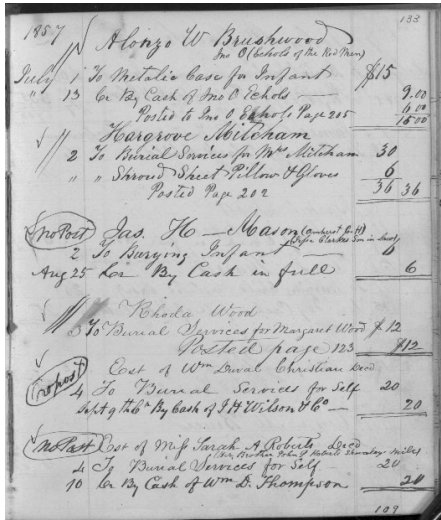 133
1857 Alonzo W Brushwood
Jno O (Echols of the Red Men)
July 1 To Metalic Case for Infant $15
" 13 Cr By Cash of Jno O Echols — 9.00
Posted to Jno O Echols Page 205 6.00
15.00
Hargrove Mitcham
2 To Burial Services for Mrs Mitcham 30
" " Shroud Sheet Pillow & Gloves 6
Posted Page 202 36 36
no Post Jas. H — Mason (Amherst C.H)
Clarkes Son in Law)
2 To Burying Infant — 6
Aug 25 Cr By Cash in full 6
Rhoda Wood
3 To Burial Services for Margaret Wood $12
Posted page 123 $12
Est of Wm Duval Christian Decd
no post
4 To Burial Services for Self 20
Sept 9th Cr By Cash of J H Wilson & Co — 20
no Post Est of Miss Sarah A. Roberts Decd
(Her Brother John Roberts miles
4 To Burial Services for Self 20
10 Cr By Cash of Wm D. Thompson 20
109